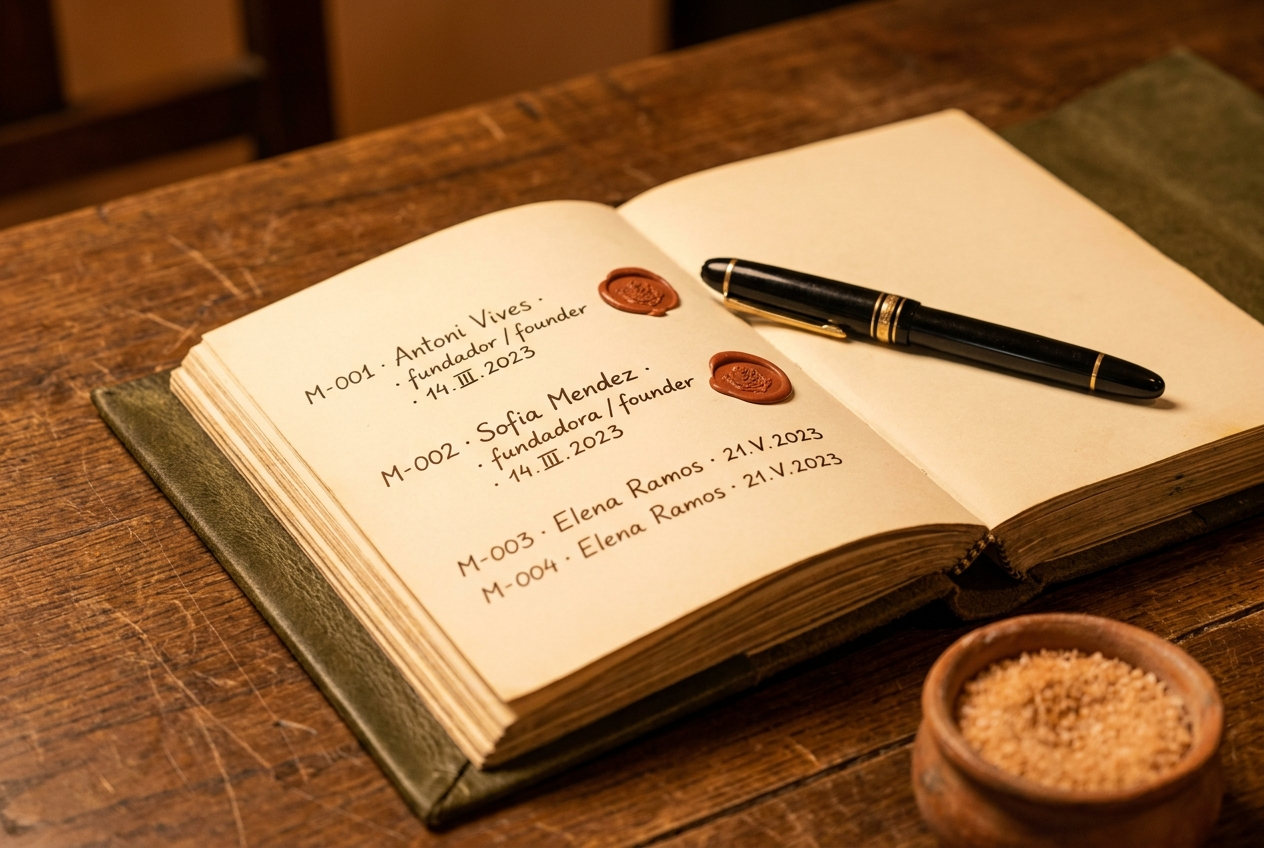 M-001 · Antoni Vives ·
· fundador / founder
· 14.III.2023
M-002 · Sofia Mendez ·
· fundadora / founder
· 14.III.2023
M-003 · Elena Ramos · 21.V.2023
M-004 · Elena Ramos · 21.V.2023